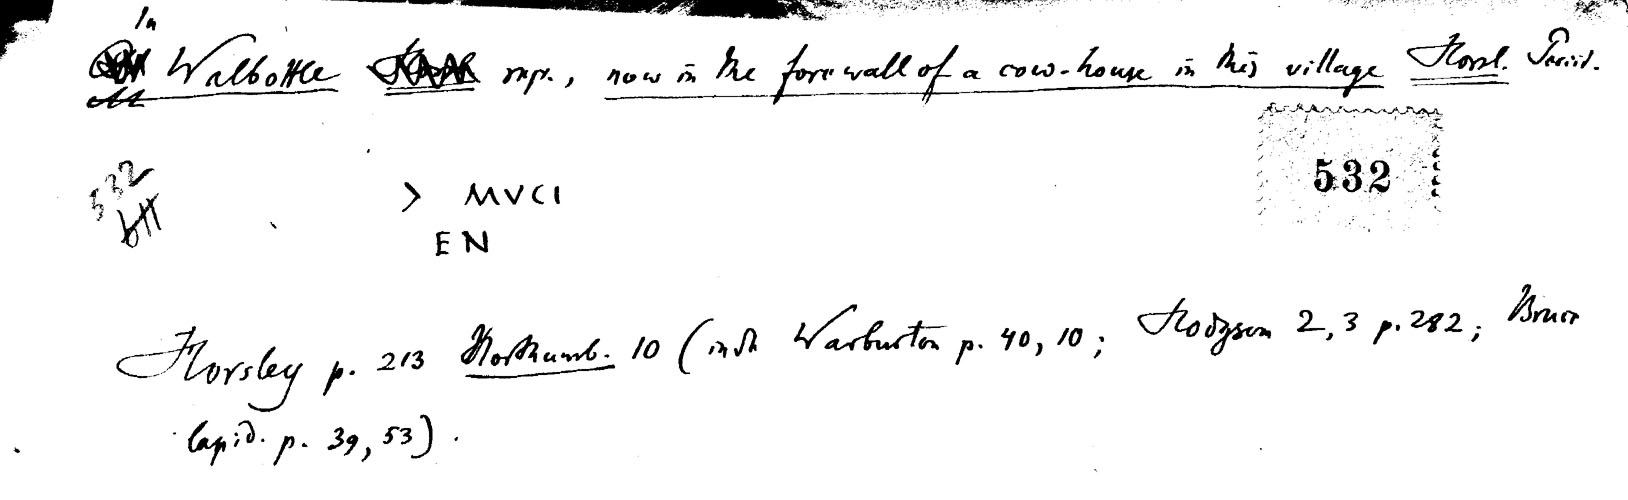 In
Walbottle rep., now in the fore wall of a cow-house in this village Horsl. Periit.
532
532
> MVCI
EN
Horsley p. 213 Northumb. 10 (inde Warburton p. 40, 10; Hodgson 2, 3 p. 282; Bruce
lapid. p. 39, 53).